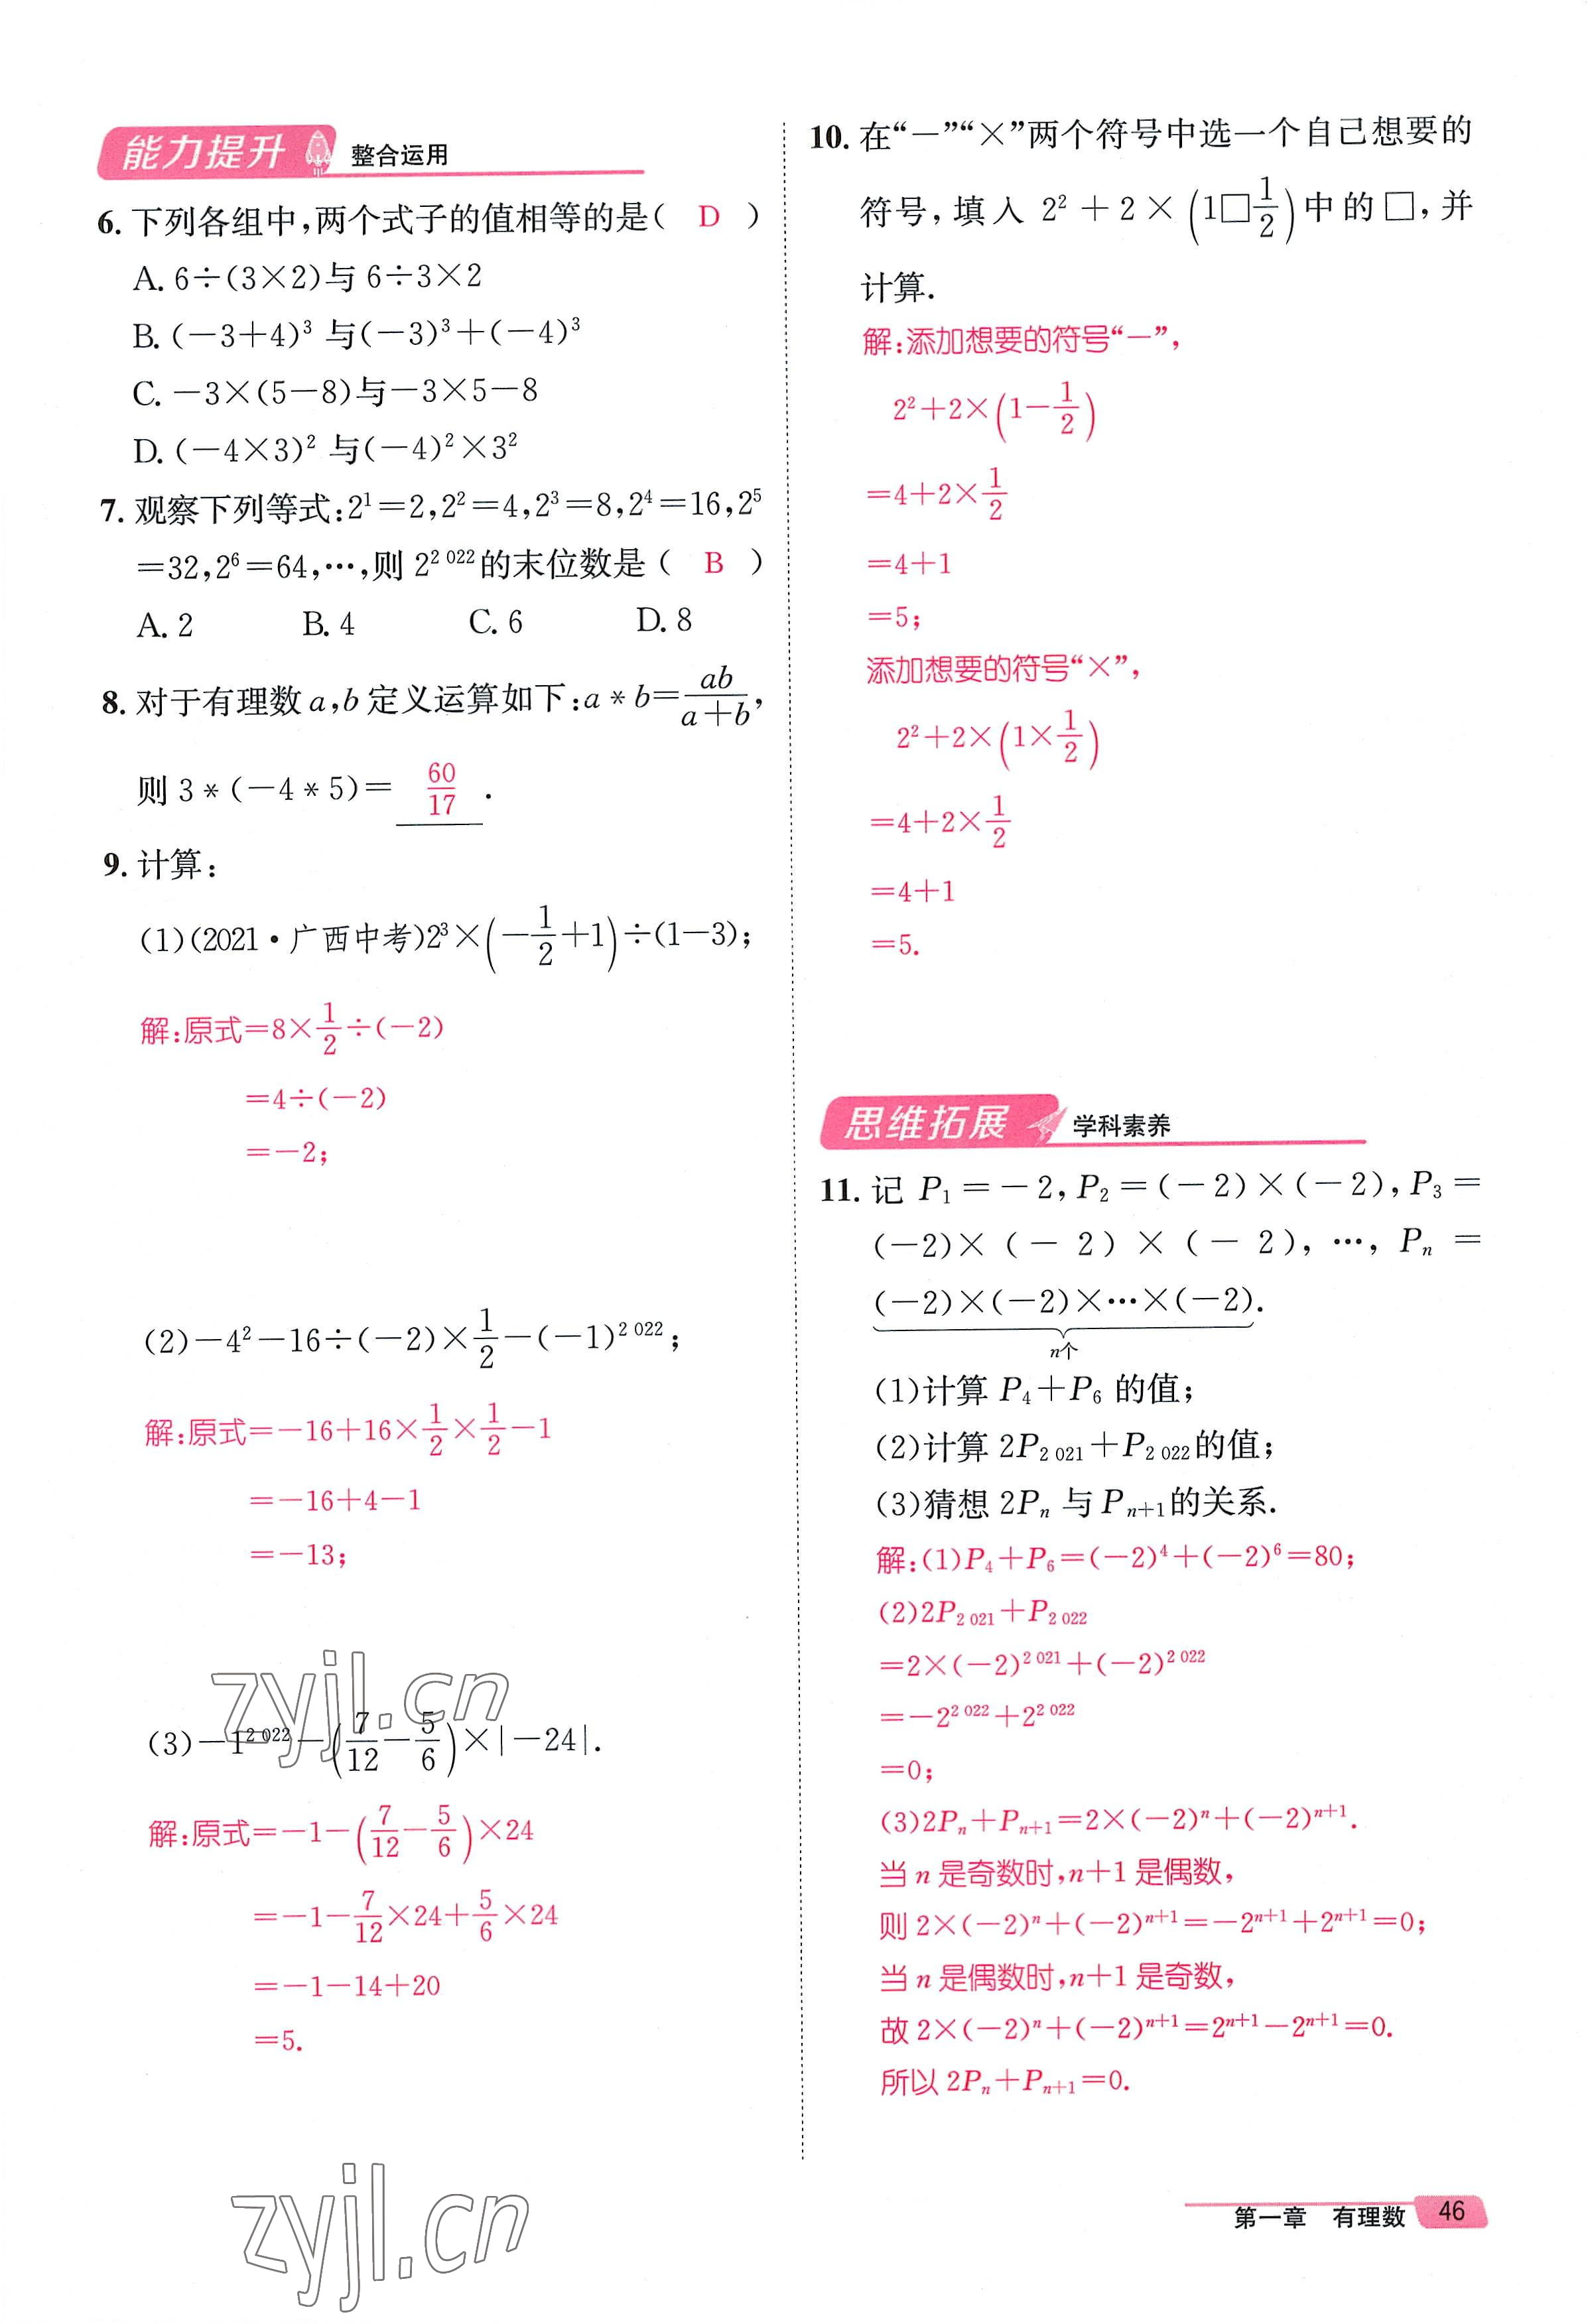 能力提升 整合运用
6. 下列各组中,两个式子的值相等的是( D )
A. 6÷(3×2)与 6÷3×2
B. (－3+4)³ 与(－3)³+(－4)³
C. －3×(5－8)与－3×5－8
D. (－4×3)² 与(－4)²×3²
7. 观察下列等式:2¹=2,2²=4,2³=8,2⁴=16,2⁵
=32,2⁶=64,…,则 2^{2 022}的末位数是( B )
A. 2 B. 4 C. 6 D. 8
8. 对于有理数 a,b 定义运算如下:a * b=\frac{ab}{a+b},
则 3 * (－4 * 5)= \frac{60}{17} .
9. 计算:
(1)(2021·广西中考)2³×(－\frac{1}{2}+1)÷(1－3);
解:原式=8×\frac{1}{2}÷(－2)
=4÷(－2)
=－2;
(2)－4²－16÷(－2)×\frac{1}{2}－(－1)^{2 022};
解:原式=－16+16×\frac{1}{2}×\frac{1}{2}－1
=－16+4－1
=－13;
zyjl.cn
(3)－1^{2 022}－(\frac{7}{12}－\frac{5}{6})×|－24|.
解:原式=－1－(\frac{7}{12}－\frac{5}{6})×24
=－1－\frac{7}{12}×24+\frac{5}{6}×24
=－1－14+20
=5.
zyjl.cn
10. 在“－”“×”两个符号中选一个自己想要的
符号,填入 2²+2×(1□\frac{1}{2})中的□,并
计算.
解:添加想要的符号“－”,
2²+2×(1－\frac{1}{2})
=4+2×\frac{1}{2}
=4+1
=5;
添加想要的符号“×”,
2²+2×(1×\frac{1}{2})
=4+2×\frac{1}{2}
=4+1
=5.
思维拓展 学科素养
11. 记 P₁=－2,P₂=(－2)×(－2),P₃=
(－2)×(－2)×(－2),…,Pₙ=
(－2)×(－2)×…×(－2).
n个
(1)计算 P₄+P₆ 的值;
(2)计算 2P_{2 021}+P_{2 022}的值;
(3)猜想 2Pₙ 与 P_{n+1}的关系.
解:(1)P₄+P₆=(－2)⁴+(－2)⁶=80;
(2)2P_{2 021}+P_{2 022}
=2×(－2)^{2 021}+(－2)^{2 022}
=－2^{2 022}+2^{2 022}
=0;
(3)2Pₙ+P_{n+1}=2×(－2)ⁿ+(－2)^{n+1}.
当 n 是奇数时,n+1 是偶数,
则 2×(－2)ⁿ+(－2)^{n+1}=－2^{n+1}+2^{n+1}=0;
当 n 是偶数时,n+1 是奇数,
故 2×(－2)ⁿ+(－2)^{n+1}=2^{n+1}－2^{n+1}=0.
所以 2Pₙ+P_{n+1}=0.
第一章 有理数 46